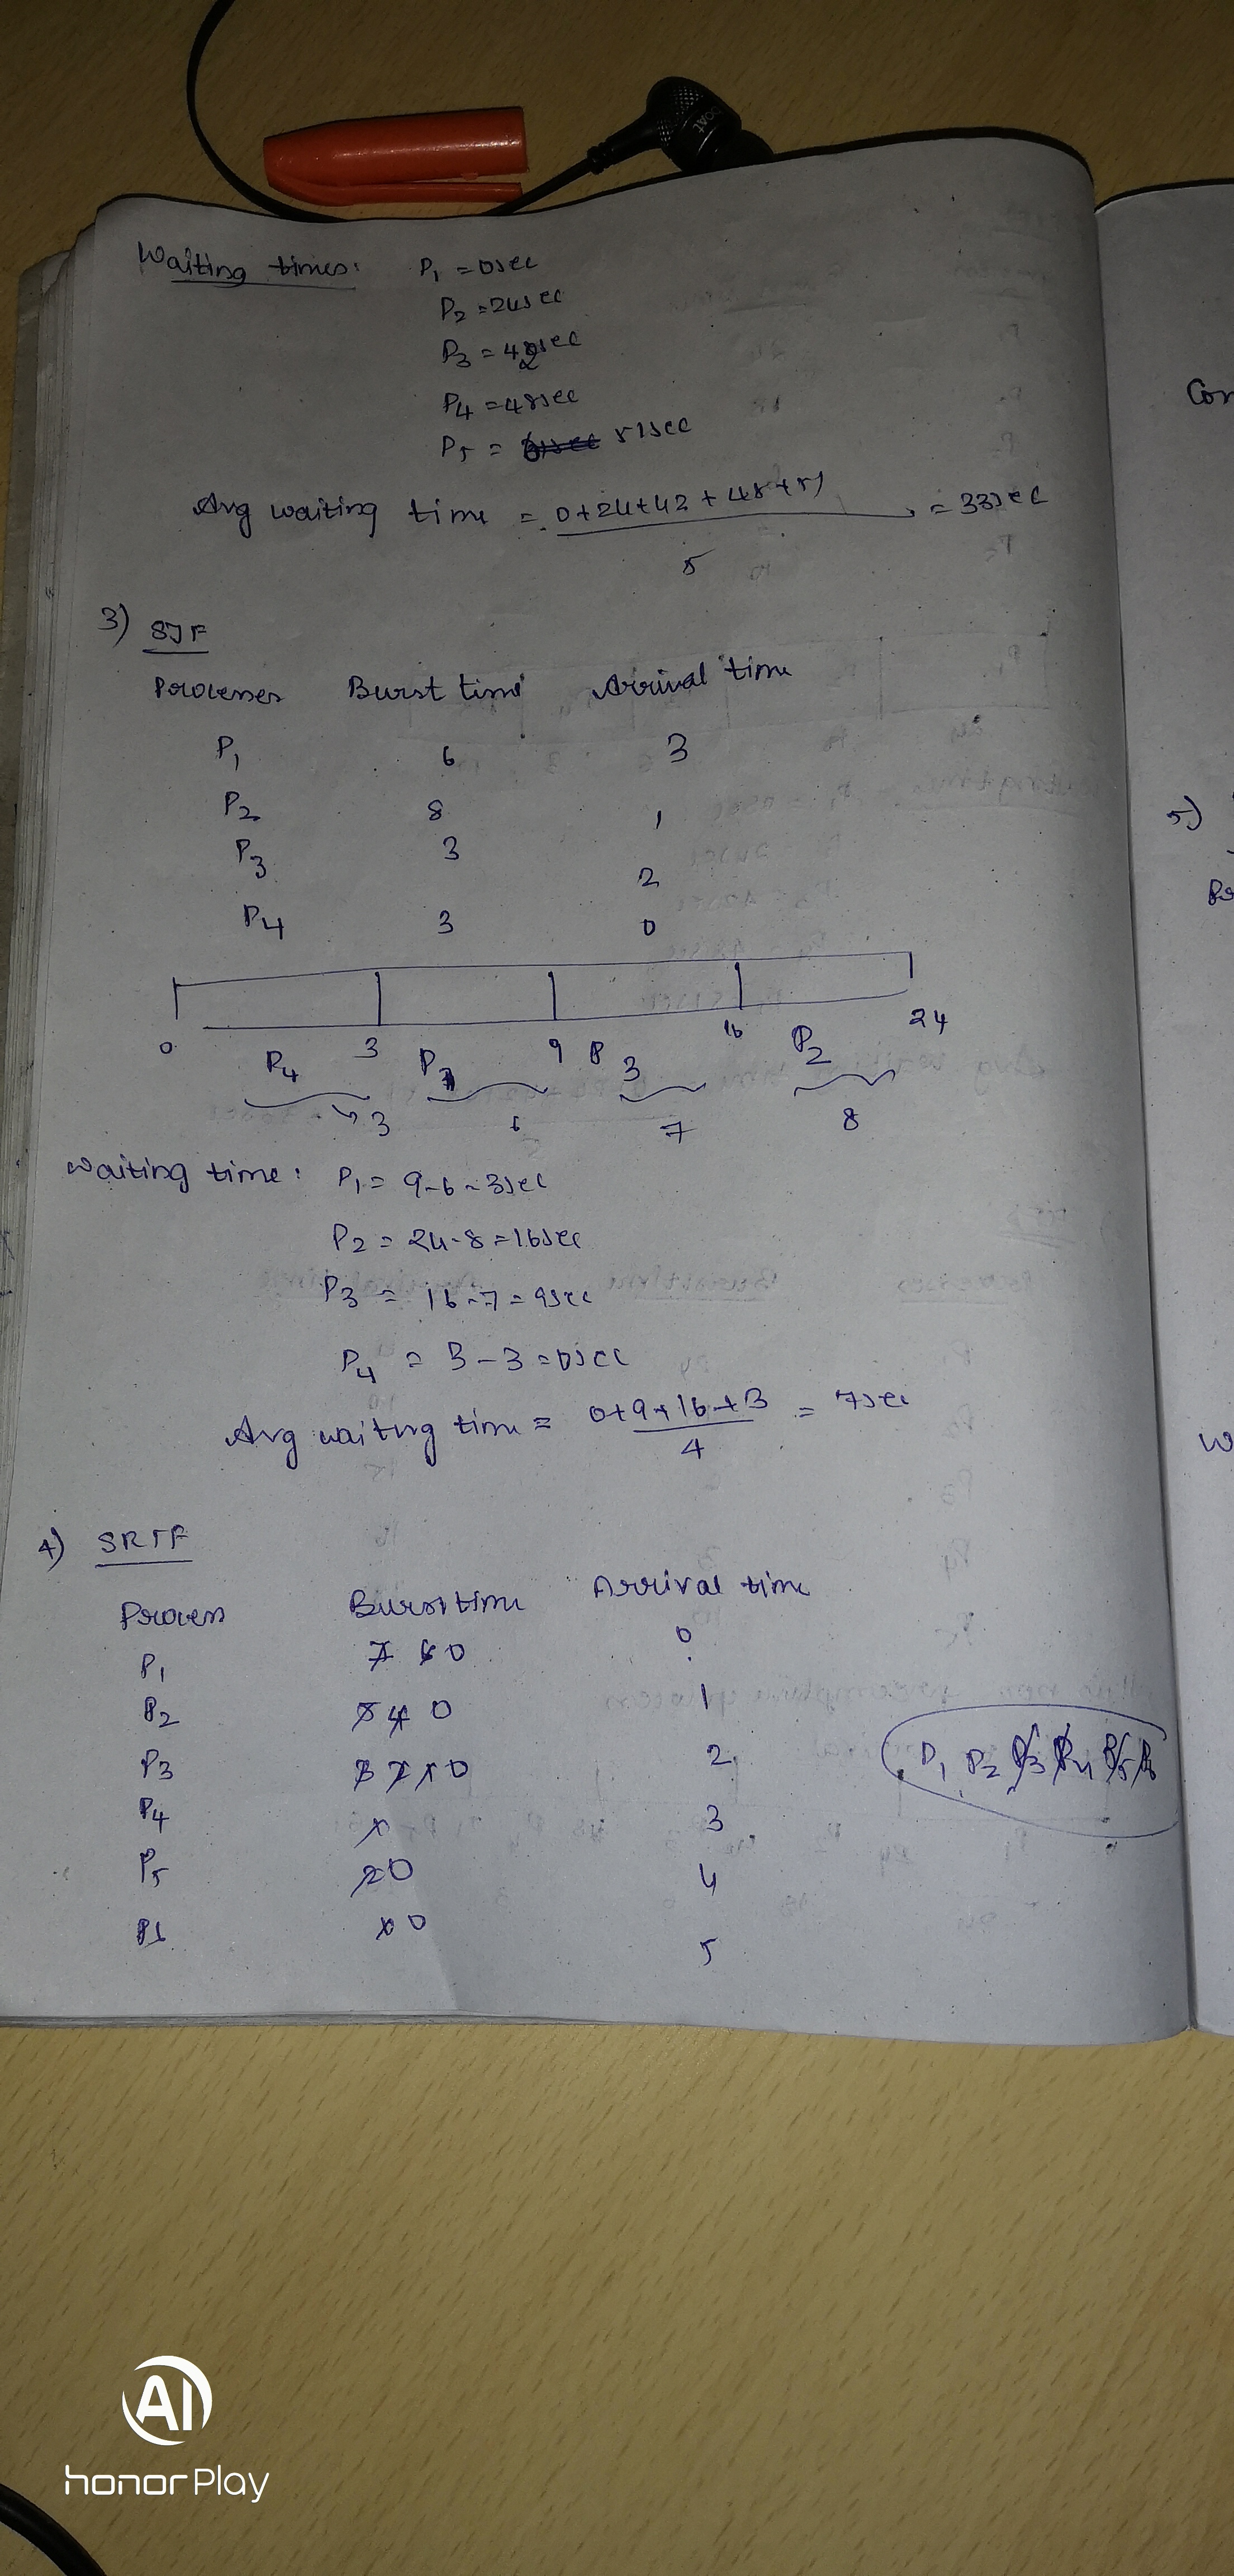 Waiting times: P1 = 0sec
P2 = 24sec
P3 = 42sec
P4 = 48sec
P5 = 51sec
Avg waiting time = 0+24+42+48+51 = 33sec
5
3) SJF
Processes Burst time Arrival time
P1 6 3
P2 8 1
P3 3 2
P4 3 0
0 3 9 16 24
P4 P1 P3 P2
3 6 7 8
Waiting time: P1 = 9-6 = 3sec
P2 = 24-8 = 16sec
P3 = 16-7 = 9sec
P4 = 3-3 = 0sec
Avg waiting time = 0+9+16+3 = 7sec
4
4) SRTF
Process Burst time Arrival time
P1 7 6 0 0
P2 5 4 0 1
P3 3 2 1 0 2
P4 1 3
P5 2 0 4
P6 1 0 5
P1 P2 P3 P4 P5 P6
Con
5)
Pr
W
boAt
AI
honor Play